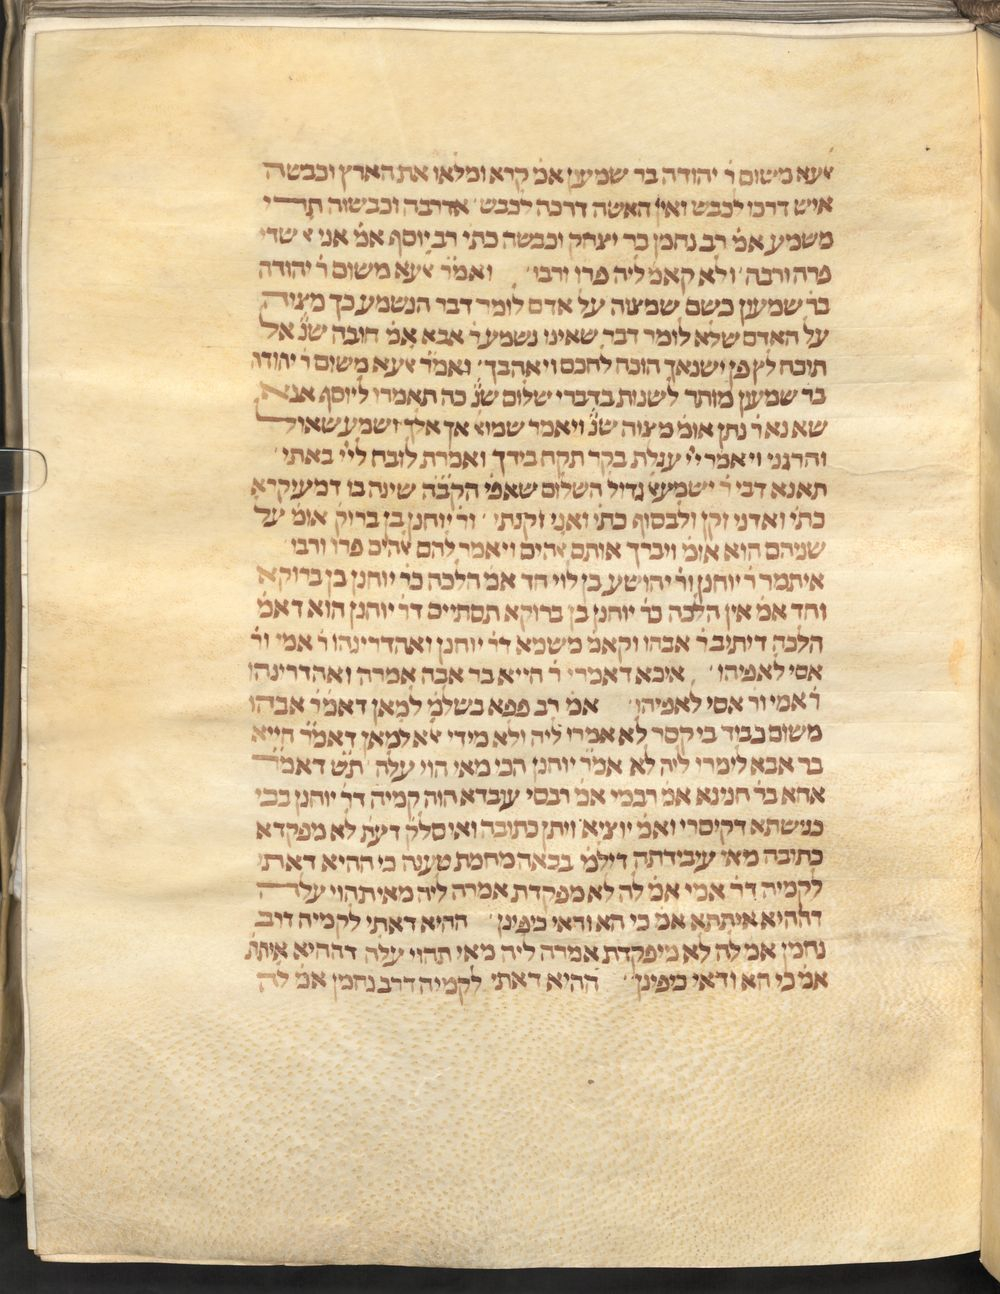 ﭏעא משום ר׳ יהודה בר שמעון אמ׳ קרא ומלאו את הארץ וכבשה
איש דרכו לכבש ואין האשה דרכה לכבש׳ אדרבה וכבשוה תרי
משמע אמ׳ רב נחמן בר יצחק וכבשה כתי׳ רב יוסף אמ׳ אני ﭏ שדי
פרה ורבה׳ ולא קאמ׳ ליה פרו ורבו׳ ואמ׳ר׳ ﭏעא משום ר׳ יהודה
בר׳ שמעון כשם שמצוה על אדם לומר דבר הנשמע כך מצוה
על האדם שלא לומר דבר שאינו נשמע ר׳ אבא אמ׳ חובה שנ׳ אל
תוכח לץ פן ישנאך הוכח לחכם ויאהבך׳ ואמ׳ר׳ ﭏעא משום ר׳ יהודה
בר שמעון מותר לשנות בדברי שלום שנ׳ כה תאמרו ליוסף אנא
שא נא ר׳ נתן אומ׳ מצוה שנ׳ ויאמר שמוﭏ אך אלך ושמע שאול
והרגני ויאמר י״י עגלת בקר תקח בידך ואמרת לזבח לי״י באתי׳
תאנא דבי ר׳ ישמעﭏ גדול השלום שאפי׳ הקב״ה שינה בו דמעיקרא
כתי׳ ואדני זקן ולבסוף כתי׳ ואני זקנתי׳ ור׳ יוחנן בן ברוק׳ אומ׳ על
שניהם הוא אומ׳ ויברך אותם ﭏהים ויאמר להם ﭏהים פרו ורבו׳
איתמר ר׳ יוחנן ור׳ יהושע בן לוי חד אמ׳ הלכה כר׳ יוחנן בן ברוקא
וחד אמ׳ אין הלכה כר׳ יוחנן בן ברוקא תסתיים דר׳ יוחנן הוא דאמ׳
הלכה דיתיב ר׳ אבהו וקאמ׳ משמא דר׳ יוחנן ואהדרינהו ר׳ אמי ור׳
אסי לאפיהו׳ איכא דאמרי ר׳ חייא בר אבה אמרה ואהדרינהו
ר׳ אמי ור׳ אסי לאפיהו׳ אמ׳ רב פפא בשלמ׳ למאן דאמ׳ר׳ אבהו
משום כבוד בי קסר לא אמרו ליה ולא מידי ﭏא למאן דאמ׳ר׳ חייא
בר אבא לימרו ליה לא אמ׳ר׳ יוחנן הכי מאי הוי עלה׳ ת״ש דאמ״ר
אחא בר׳ חנינא אמ׳ רבמי אמ׳ רבסי עובדא הוה קמיה דר׳ יוחנן בבי
כנישתא דקיסרי ואמ׳ יוציא ויתן כתובה ואי סלק׳ דעת׳ לא מפקדא
כתובה מאי עיבידתה דילמ׳ בבאה מחמת טענה כי ההיא דאתי
לקמיה דר׳ אמי אמ׳ לה לא מפקדת אמרה ליה מאי תהוי עלה
דההיא איתתא אמ׳ כי הא ודאי כיפינן׳ ההיא דאתי לקמיה דרב
נחמן אמ׳ לה לא מיפקדת אמרה ליה מאי תהוי עלה דההיא איתת׳
אמ׳ כי הא ודאי כיפינן׳ ההיא דאתי לקמיה דרב נחמן אמ׳ לה